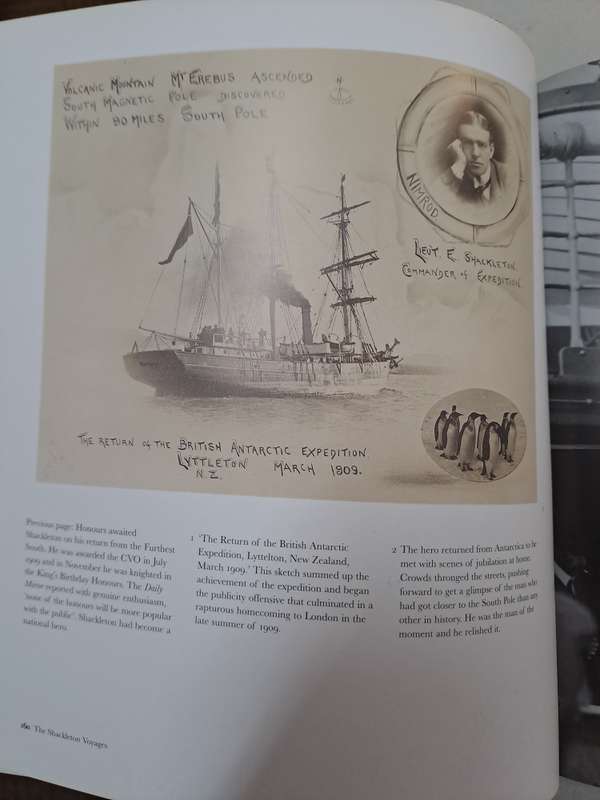 VOLCANIC MOUNTAIN MT EREBUS ASCENDED
SOUTH MAGNETIC POLE DISCOVERED
WITHIN 90 MILES SOUTH POLE
N
NIMROD.
LIEUT. E. SHACKLETON
COMMANDER of EXPEDITION
THE RETURN of THE BRITISH ANTARCTIC EXPEDITION
LYTTLETON MARCH 1909.
N.Z.
Previous page: Honours awaited
Shackleton on his return from the Furthest
South. He was awarded the CVO in July
1909 and in November he was knighted in
the King's Birthday Honours. The Daily
Mirror reported with genuine enthusiasm,
'none of the honours will be more popular
with the public'. Shackleton had become a
national hero.
1 'The Return of the British Antarctic
Expedition, Lyttelton, New Zealand,
March 1909.' This sketch summed up the
achievement of the expedition and began
the publicity offensive that culminated in a
rapturous homecoming to London in the
late summer of 1909.
2 The hero returned from Antarctica to be
met with scenes of jubilation at home.
Crowds thronged the streets, pushing
forward to get a glimpse of the man who
had got closer to the South Pole than any
other in history. He was the man of the
moment and he relished it.
The Shackleton Voyages